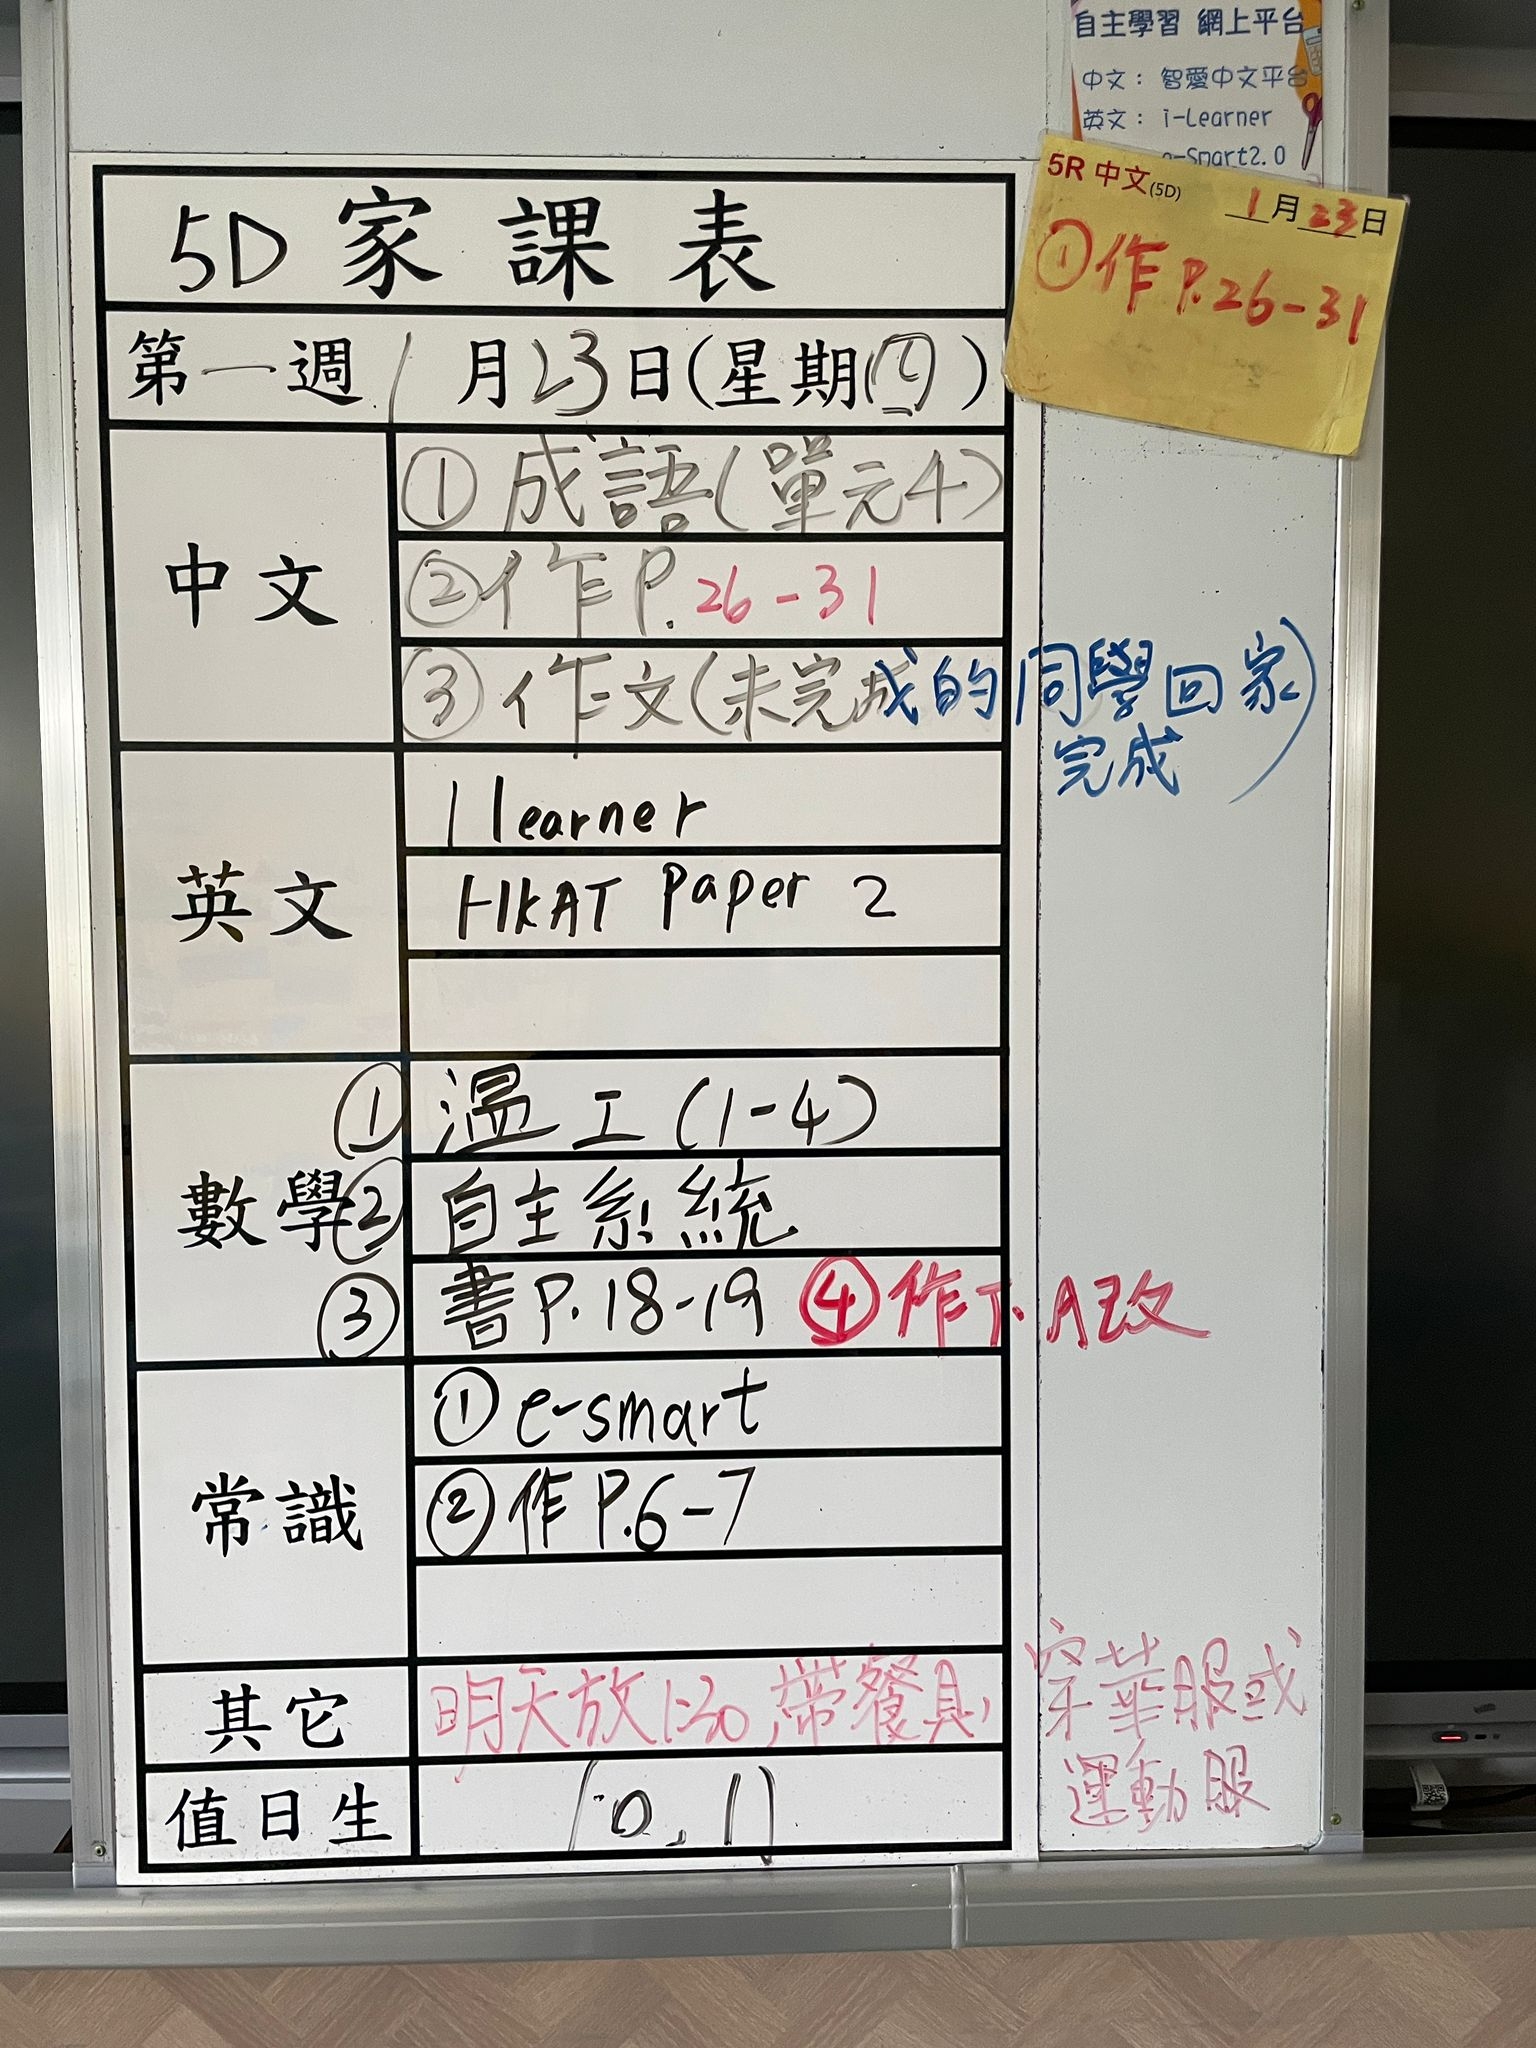 自主學習 網上平台
中文：智愛中文平台
英文：i-Learner
e-Smart2.0
5R 中文(5D) 1月23日
①作P.26-31
5D 家課表
第一週 1月23日(星期四)
中文
①成語(單元4)
②作P.26-31
③作文(未完成的同學回家完成)
英文
I learner
HKAT Paper 2
數學
①溫工(1-4)
②自主系統
③書P.18-19 ④作T.A改
常識
①e-smart
②作P.6-7
其它
明天放1:30,帶餐具,穿華服或
運動服
值日生
10,11